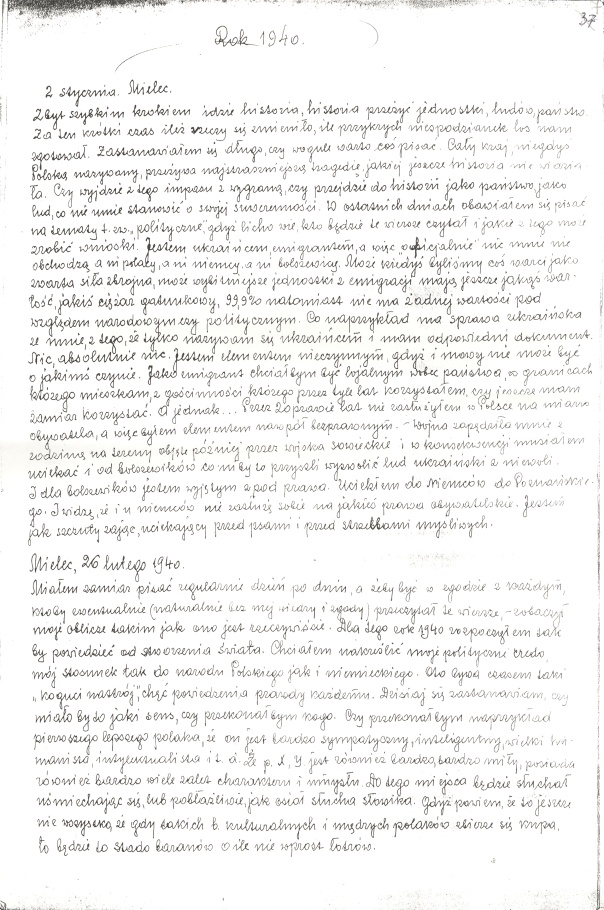 37
Rok 1940.
2 stycznia. Mielec.
Zbyt szybkim krokiem idzie historia, historia przeżyć jednostki, ludów, państw.
Za ten krótki czas ileż rzeczy się zmieniło, ile przykrych niespodzianek los nam
zgotował. Zastanawiałem się długo, czy wogule warto coś pisać. Cały kraj, niegdyś
Polską nazywany, przeżywa najstraszniejszą tragedię, jakiej jeszcze historia nie widzia-
ła. Czy wyjdzie z tego impasu z wygraną, czy przejdzie do historii jako państwo, jako
lud, co nie umie stanowić o swojej suwerenności. W ostatnich dniach obawiałem się pisać
na tematy t. zw. "polityczne" gdyż licho wie, kto będzie te wiersze czytał i jakie z tego może
zrobić wnioski. Jestem ukraińcem, emigrantem, a więc "oficjalnie" nic mnie nie
obchodzą ani polacy, ani niemcy, ani bolszewicy. Może kiedyś byliśmy coś warci jako
zwarta siła zbrojna, może wybitniejsze jednostki z emigracji mają jeszcze jakąś war-
tość, jakiś ciężar gatunkowy, 99,9% natomiast nie ma żadnej wartości pod
względem narodowym czy politycznym. Co naprzykład ma sprawa ukraińska
ze mnie, z tego, że tylko nazywam się ukraińcem i mam odpowiedni dokument.
Nic, absolutnie nic. Jestem elementem nieczynnym, gdyż i mowy nie może być
o jakimś czynie. Jako emigrant chciałbym być lojalnym wobec państwa, w granicach
którego mieszkam, z gościnności którego przez tyle lat korzystałem, czy jeszcze mam
zamiar korzystać. A jednak... Przez 20 prawie lat nie zasłużyłem w Polsce na miano
obywatela, a więc byłem elementem nawpół bezprawnym. - Wojna zapędziła mnie z
rodziną na tereny objęte później przez wojska sowieckie i w konsekwencji musiałem
uciekać i od bolszewików co niby to przyszli wyzwolić lud ukraiński z niewoli.
I dla bolszewików jestem wyjętym z pod prawa. Uciekłem do Niemców do Poznańskie-
go. I widzę, że i u niemców nie zasłużę sobie na jakieś prawa obywatelskie. Jestem
jak szczuty zając, uciekający przed psami i przed strzelbami myśliwych.
Mielec, 26 lutego 1940.
Miałem zamiar pisać regularnie dzień po dniu, a żeby być w zgodzie z każdym,
ktoby ewentualnie (naturalnie bez mej wiary i zgody) przeczytał te wiersze, - zobaczył
moje oblicze takim jak ono jest rzeczywiście. Dla tego rok 1940 rozpocząłem tak
by powiedzieć od stworzenia świata. Chciałem nakreślić moje polityczne credo,
mój stosunek tak do narodu Polskiego jak i niemieckiego. Oto bywa czasem taki
"koguci nastrój", chęć powiedzenia prawdy każdemu. Dzisiaj się zastanawiam, czy
miało by to jaki sens, czy przekonałbym kogo. Czy przekonałbym naprzykład
pierwszego lepszego polaka, że on jest bardzo sympatyczny, inteligentny, wielki hu-
manista, intelektualista i t. d. Że p. X, Y jest również bardzo, bardzo miły, posiada
również bardzo wiele zalet charakteru i umysłu. Do tego miejsca będzie słuchał
uśmiechając się, lub pobłażliwie, jak osioł słucha słowika. Gdyż powiem, że to jeszcze
nie wszystko, że gdy takich b. kulturalnych i mądrych polaków zbierze się kupa,
to będzie to stado baranów o ile nie wprost łotrów.